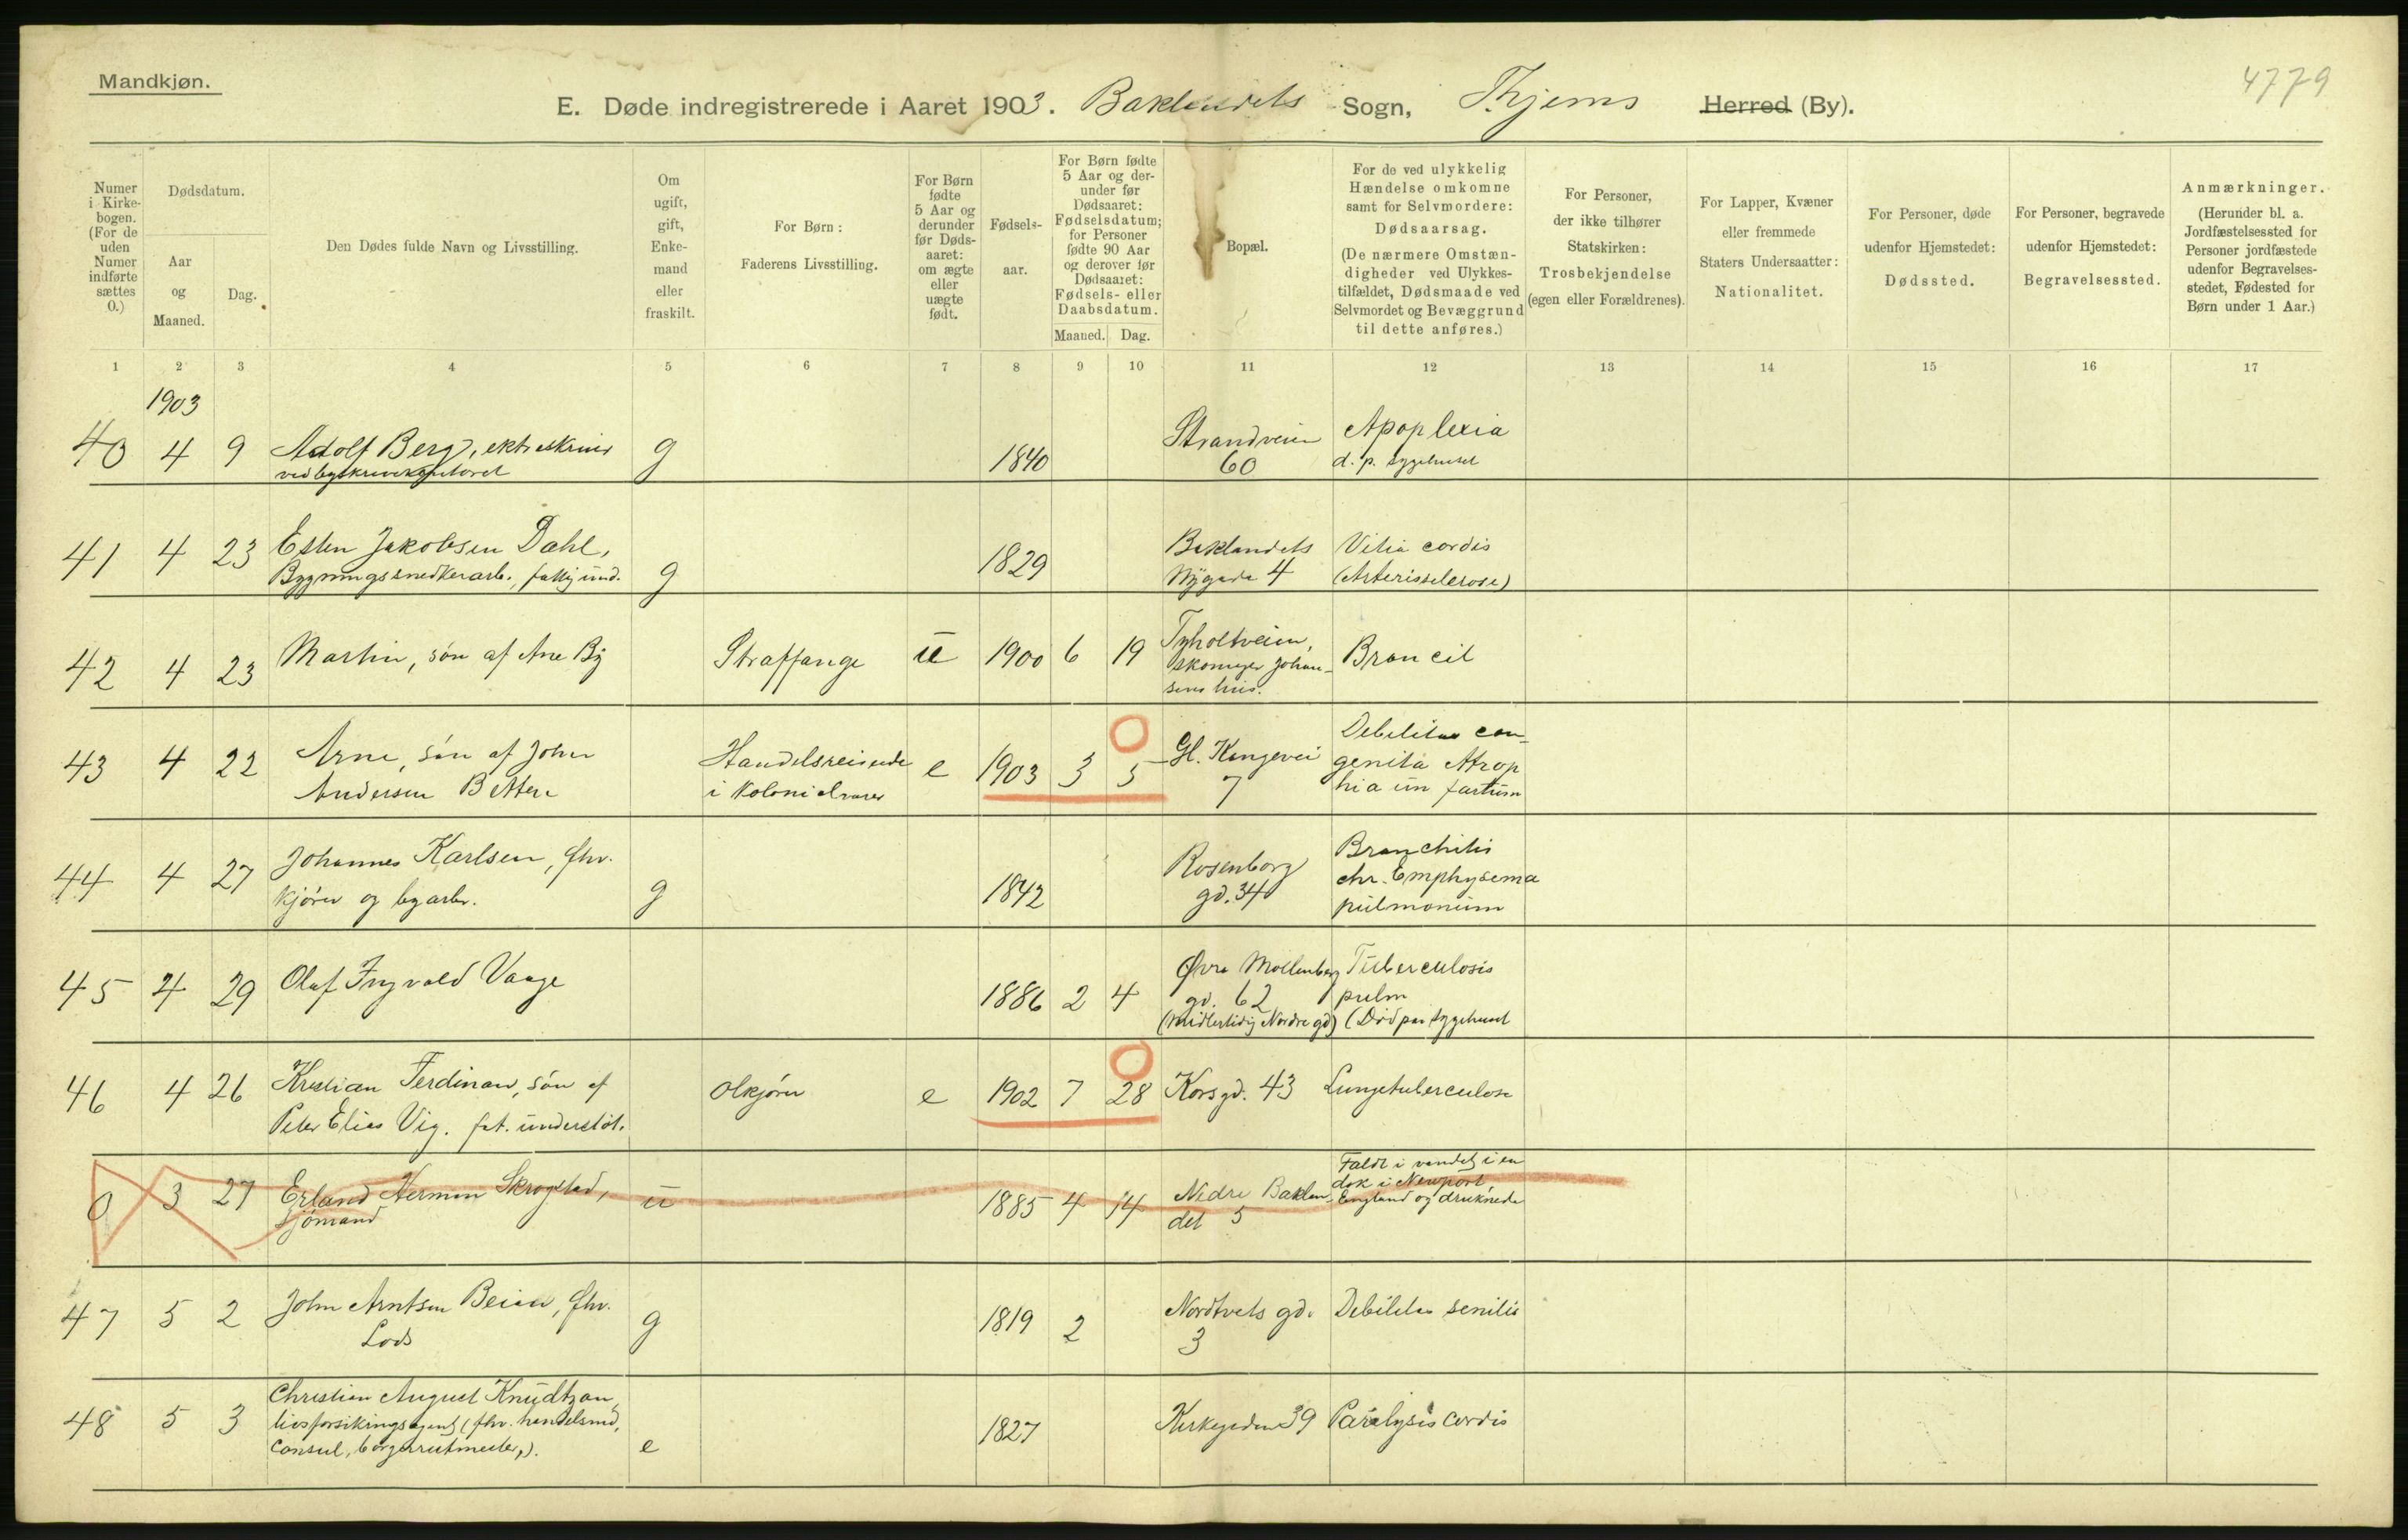 Mandkjøn.
4779
E. Døde indregistrerede i Aaret 1903. Baklandets Sogn, Thjems Herred (By).
Numer i Kirkebogen. (For de uden Numer indførte sættes 0.)
Dødsdatum.
Aar og Maaned.
Dag.
Den Dødes fulde Navn og Livsstilling.
Om ugift, gift, Enkemand eller fraskilt.
For Børn: Faderens Livsstilling.
For Børn fødte 5 Aar og derunder før Dødsaaret: om ægte eller uægte født.
Fødselsaar.
For Børn fødte 5 Aar og derunder før Dødsaaret: Fødselsdatum; for Personer fødte 90 Aar og derover før Dødsaaret: Fødsels- eller Daabsdatum.
Maaned. Dag.
Bopæl.
For de ved ulykkelig Hændelse omkomne samt for Selvmordere: Dødsaarsag. (De nærmere Omstændigheder ved Ulykkestilfældet, Dødsmaade ved Selvmordet og Bevæggrund til dette anføres.)
For Personer, der ikke tilhører Statskirken: Trosbekjendelse (egen eller Forældrenes).
For Lapper, Kvæner eller fremmede Staters Undersaatter: Nationalitet.
For Personer, døde udenfor Hjemstedet: Dødssted.
For Personer, begravede udenfor Hjemstedet: Begravelsessted.
Anmærkninger. (Herunder bl. a. Jordfæstelsessted for Personer jordfæstede udenfor Begravelsesstedet, Fødested for Børn under 1 Aar.)
1 2 3 4 5 6 7 8 9 10 11 12 13 14 15 16 17
1903
40 4 9 Adolf Berg, g 1840 Strandveien 60 Apoplexia d. p. sygehuset
41 4 23 Esten Jakobsen Dahl, Bygningssnedkerarb., fattig und. g 1829 Baklandets Nygade 4 Vitia cordis (Arterissclerose)
42 4 23 Martin, søn af Ane By Straffange u 1900 6 19 Tyholtveien, skomager Johansens hus. Broncit
43 4 22 Arne, søn af John Andersen Handelsreisende i Kolonialvarer e 1903 3 5 Gl. Kongevei 7 Debilitas congenita Atrophia
44 4 27 Johannes Karlsen, fhv. kjører og byarb. g 1842 Rosenborg gd. 34 Bronchitis chr. Emphysema pulmonum
45 4 29 Olaf Ingvald Vaage 1886 2 4 Øvre Møllenberg gd. 62 (midlertidig Nordre gd) Tuberculosis pulm (Død paa sygehuset
46 4 26 Kristian Ferdinan, søn af Peter Elias Vig. fat. understøt. Ølkjører e 1902 7 28 Korsgd. 43 Lungetuberculose
0 3 27 Erland Herman Skrogstad, sjømand u 1885 4 14 Nedre Baklandet 5 Faldt i vandet i en dok i Newport England og druknede
47 5 2 John Arntsen Beian, fhv. Lods g 1819 2 Nordtvets gd. 3 Debilitas senilis
48 5 3 Christian August Knudtzon, livsforsikringsagent (fhv. handelsmd, Consul, borgerritmester,). e 1827 Kirkegaden 39 Paralysis cordis